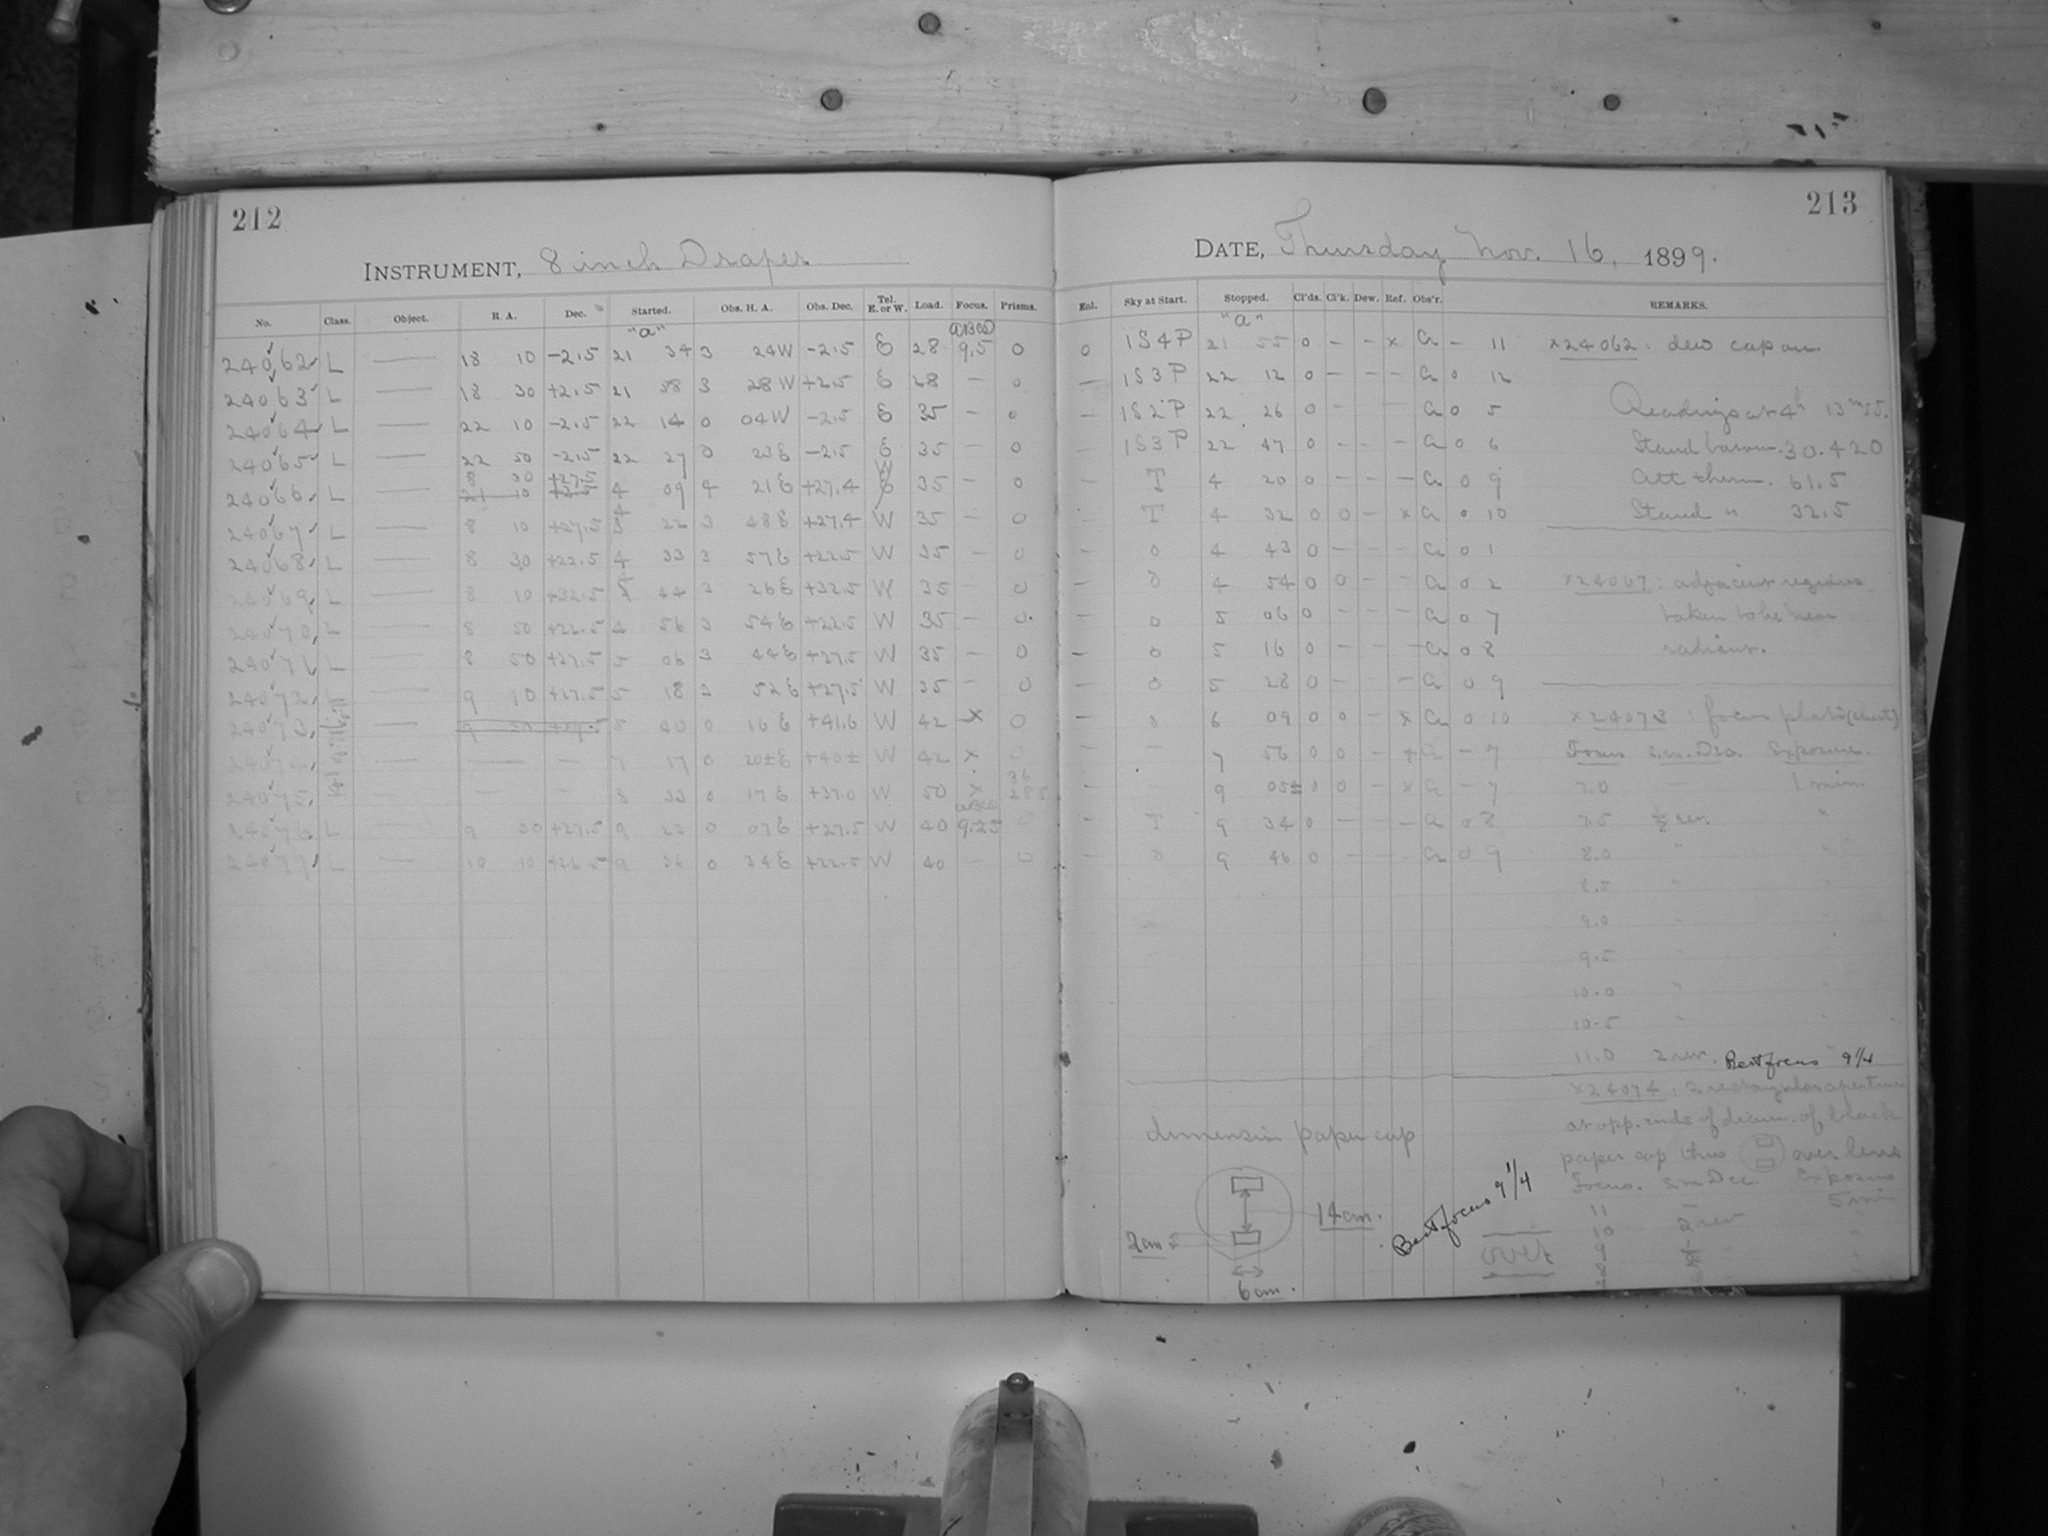 212
INSTRUMENT, 8 inch Draper
No. Class. Object. R. A. Dec. Started. Obs. H. A. Obs. Dec. Tel. E. or W. Load. Focus. Prisms.
"a"
24062 L — 18 10 -2.5 21 34 3 24W -2.5 E 28 9.5 0
24063 L — 18 30 +2.5 21 58 3 28W +2.5 E 28 — 0
24064 L — 22 10 -2.5 22 14 0 04W -2.5 E 35 — 0
24065 L — 22 50 -2.5 22 27 0 23E -2.5 E 35 — 0
24066 L — 8 30 +27.5 4 09 4 21E +27.4 W 35 — 0
24067 L — 8 10 +27.5 4 22 3 48E +27.4 W 35 — 0
24068 L — 8 30 +22.5 4 33 3 57E +22.5 W 35 — 0
24069 L — 8 10 +32.5 4 44 3 26E +32.5 W 35 — 0
24070 L — 8 50 +22.5 4 56 3 54E +22.5 W 35 — 0
24071 L — 8 50 +27.5 5 06 3 44E +27.5 W 35 — 0
24072 L — 9 10 +27.5 5 18 3 52E +27.5 W 35 — 0
24073 — 5 40 0 16E +41.6 W 42 x 0
24074 — — 7 17 0 20±E +40± W 42 x 0
24075 — — 8 33 0 17E +37.0 W 50 x
24076 L — 9 30 +27.5 9 22 0 07E +27.5 W 40 9.25 0
24077 L — 10 10 +22.5 9 36 0 34E +22.5 W 40 — 0
213
DATE, Thursday Nov. 16, 1899.
Enl. Sky at Start. Stopped. Cl'ds. Cl'k. Dew. Ref. Obs'r. REMARKS.
"a"
0 1S4P 21 55 0 — — x a — 11
— 1S3P 22 12 0 — — — a 0 12
— 1S2P 22 26 0 — — — a 0 5
— 1S3P 22 47 0 — — — a 0 6
— T 4 20 0 — — — a 0 9
— T 4 32 0 0 — x a 0 10
— 0 4 43 0 — — — a 0 1
— 0 4 54 0 0 — — a 0 2
— 0 5 06 0 — — — a 0 7
— 0 5 16 0 — — — a 0 8
— 0 5 28 0 — — — a 0 9
— 0 6 09 0 0 — x a 0 10
— — 7 56 0 0 — x a — 7
— — 9 05± 0 0 — x a — 7
— T 9 34 0 — — — a 0 8
— 0 9 46 0 — — — a 0 9
x24062: dew cap on.
Readings at 4h 13m 55.
Stand barom. 30.420
Att therm. 61.5
Stand " 32.5
x24067: adjacent regions
taken to be near
radiant.
x24073: focus plate (chart)
Focus s.m. Dec. Exposure.
7.0 — 1 min.
7.5 ½ rev. "
8.0 " "
8.5 " "
9.0 " "
9.5 " "
10.0 " "
10.5 " "
11.0 2 rev. "
Best focus 9 1/4
x24074: 2 rectangular apertures
at opp. ends of diam. of black
paper cap thus over lens
Focus. s.m Dec. Exposure
11 — 5 min
10 2 rev "
9 ½ "
8
dimension paper cup
14 cm.
2 cm
6 cm.
Best focus 9 1/4
over